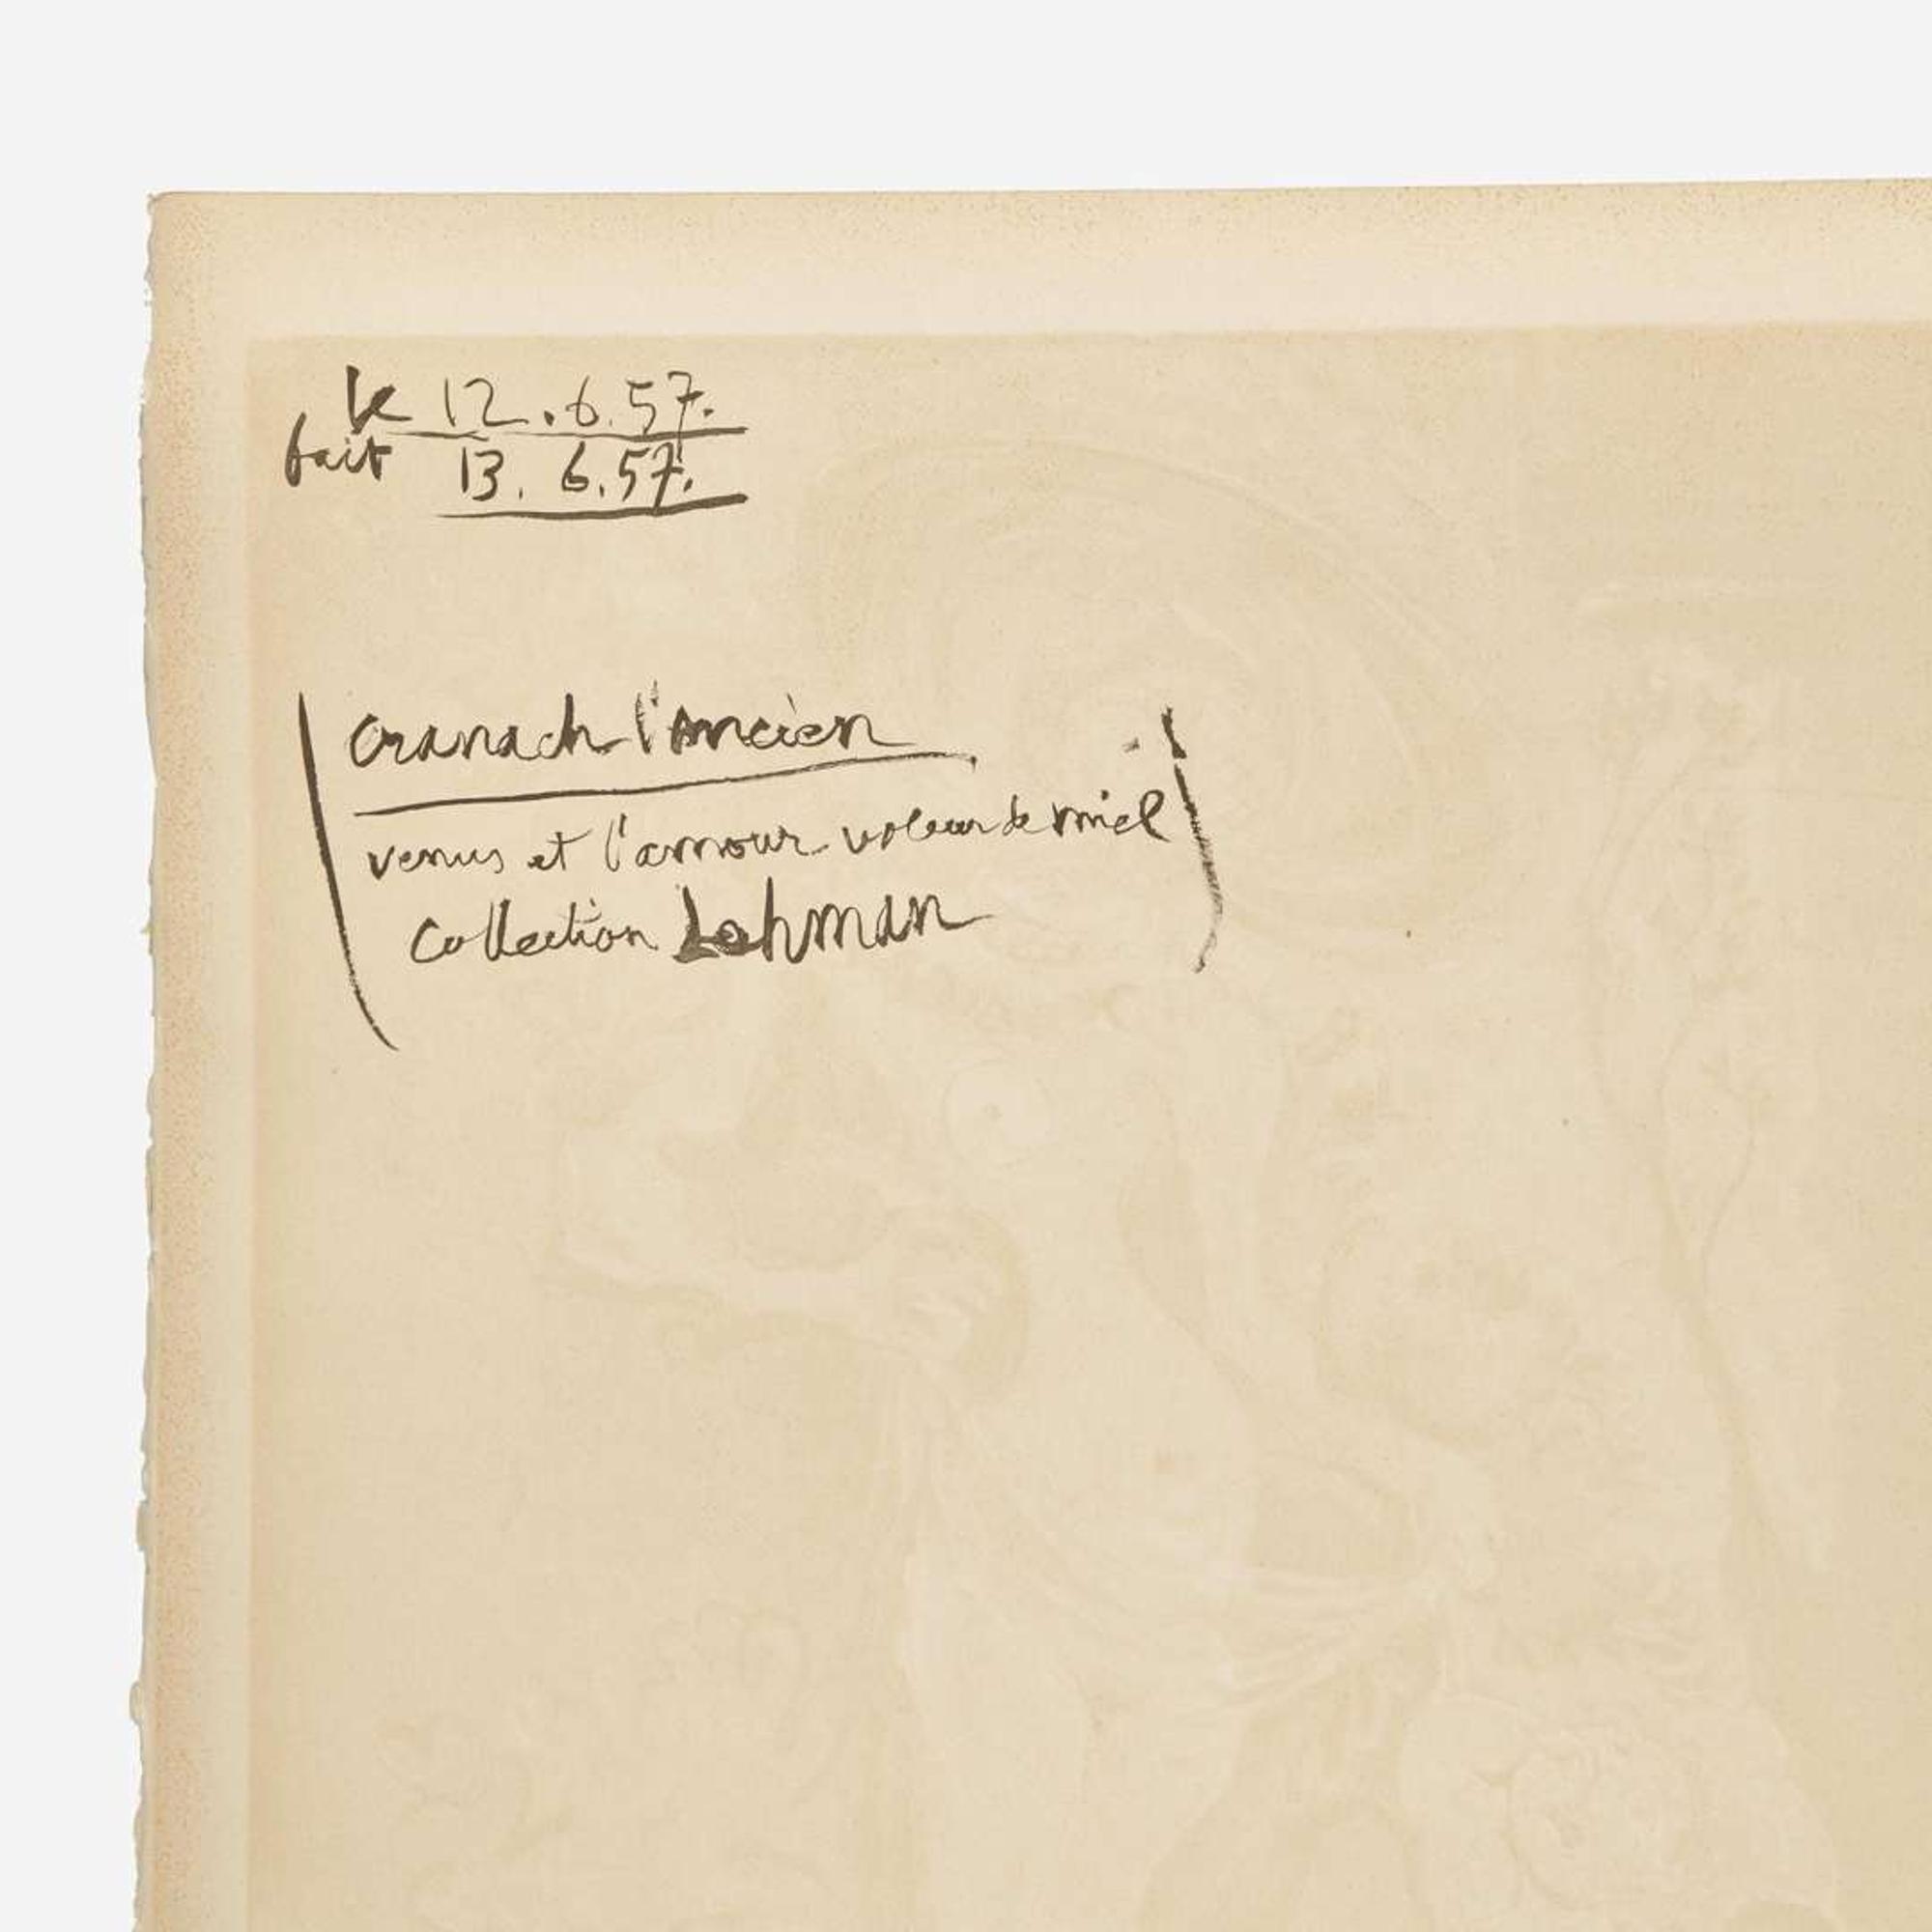 le 12.6.57.
fait 13. 6.57.
(cranach l'ancien
venus et l'amour voleur de miel)
collection Lehman